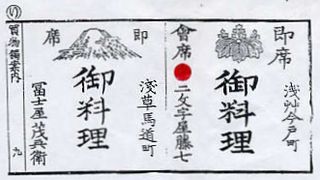 即席
御料理
浅艸今戸町
會席
二文字屋藤七
即席
御料理
淺草馬道町
冨士屋茂兵衛
買物獨案内
九